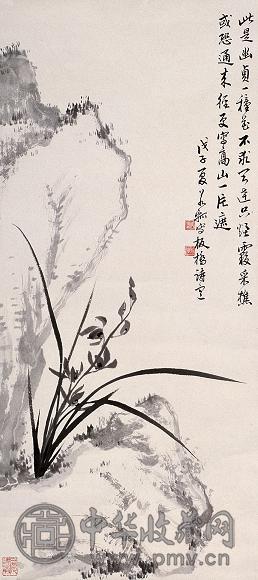 此是幽貞一種花不求聞達只烟霞采樵
或恐通来径更寫高山一片遮
戊子夏若瓢寫板橋詩意
中华收藏网
www.pmv.cn